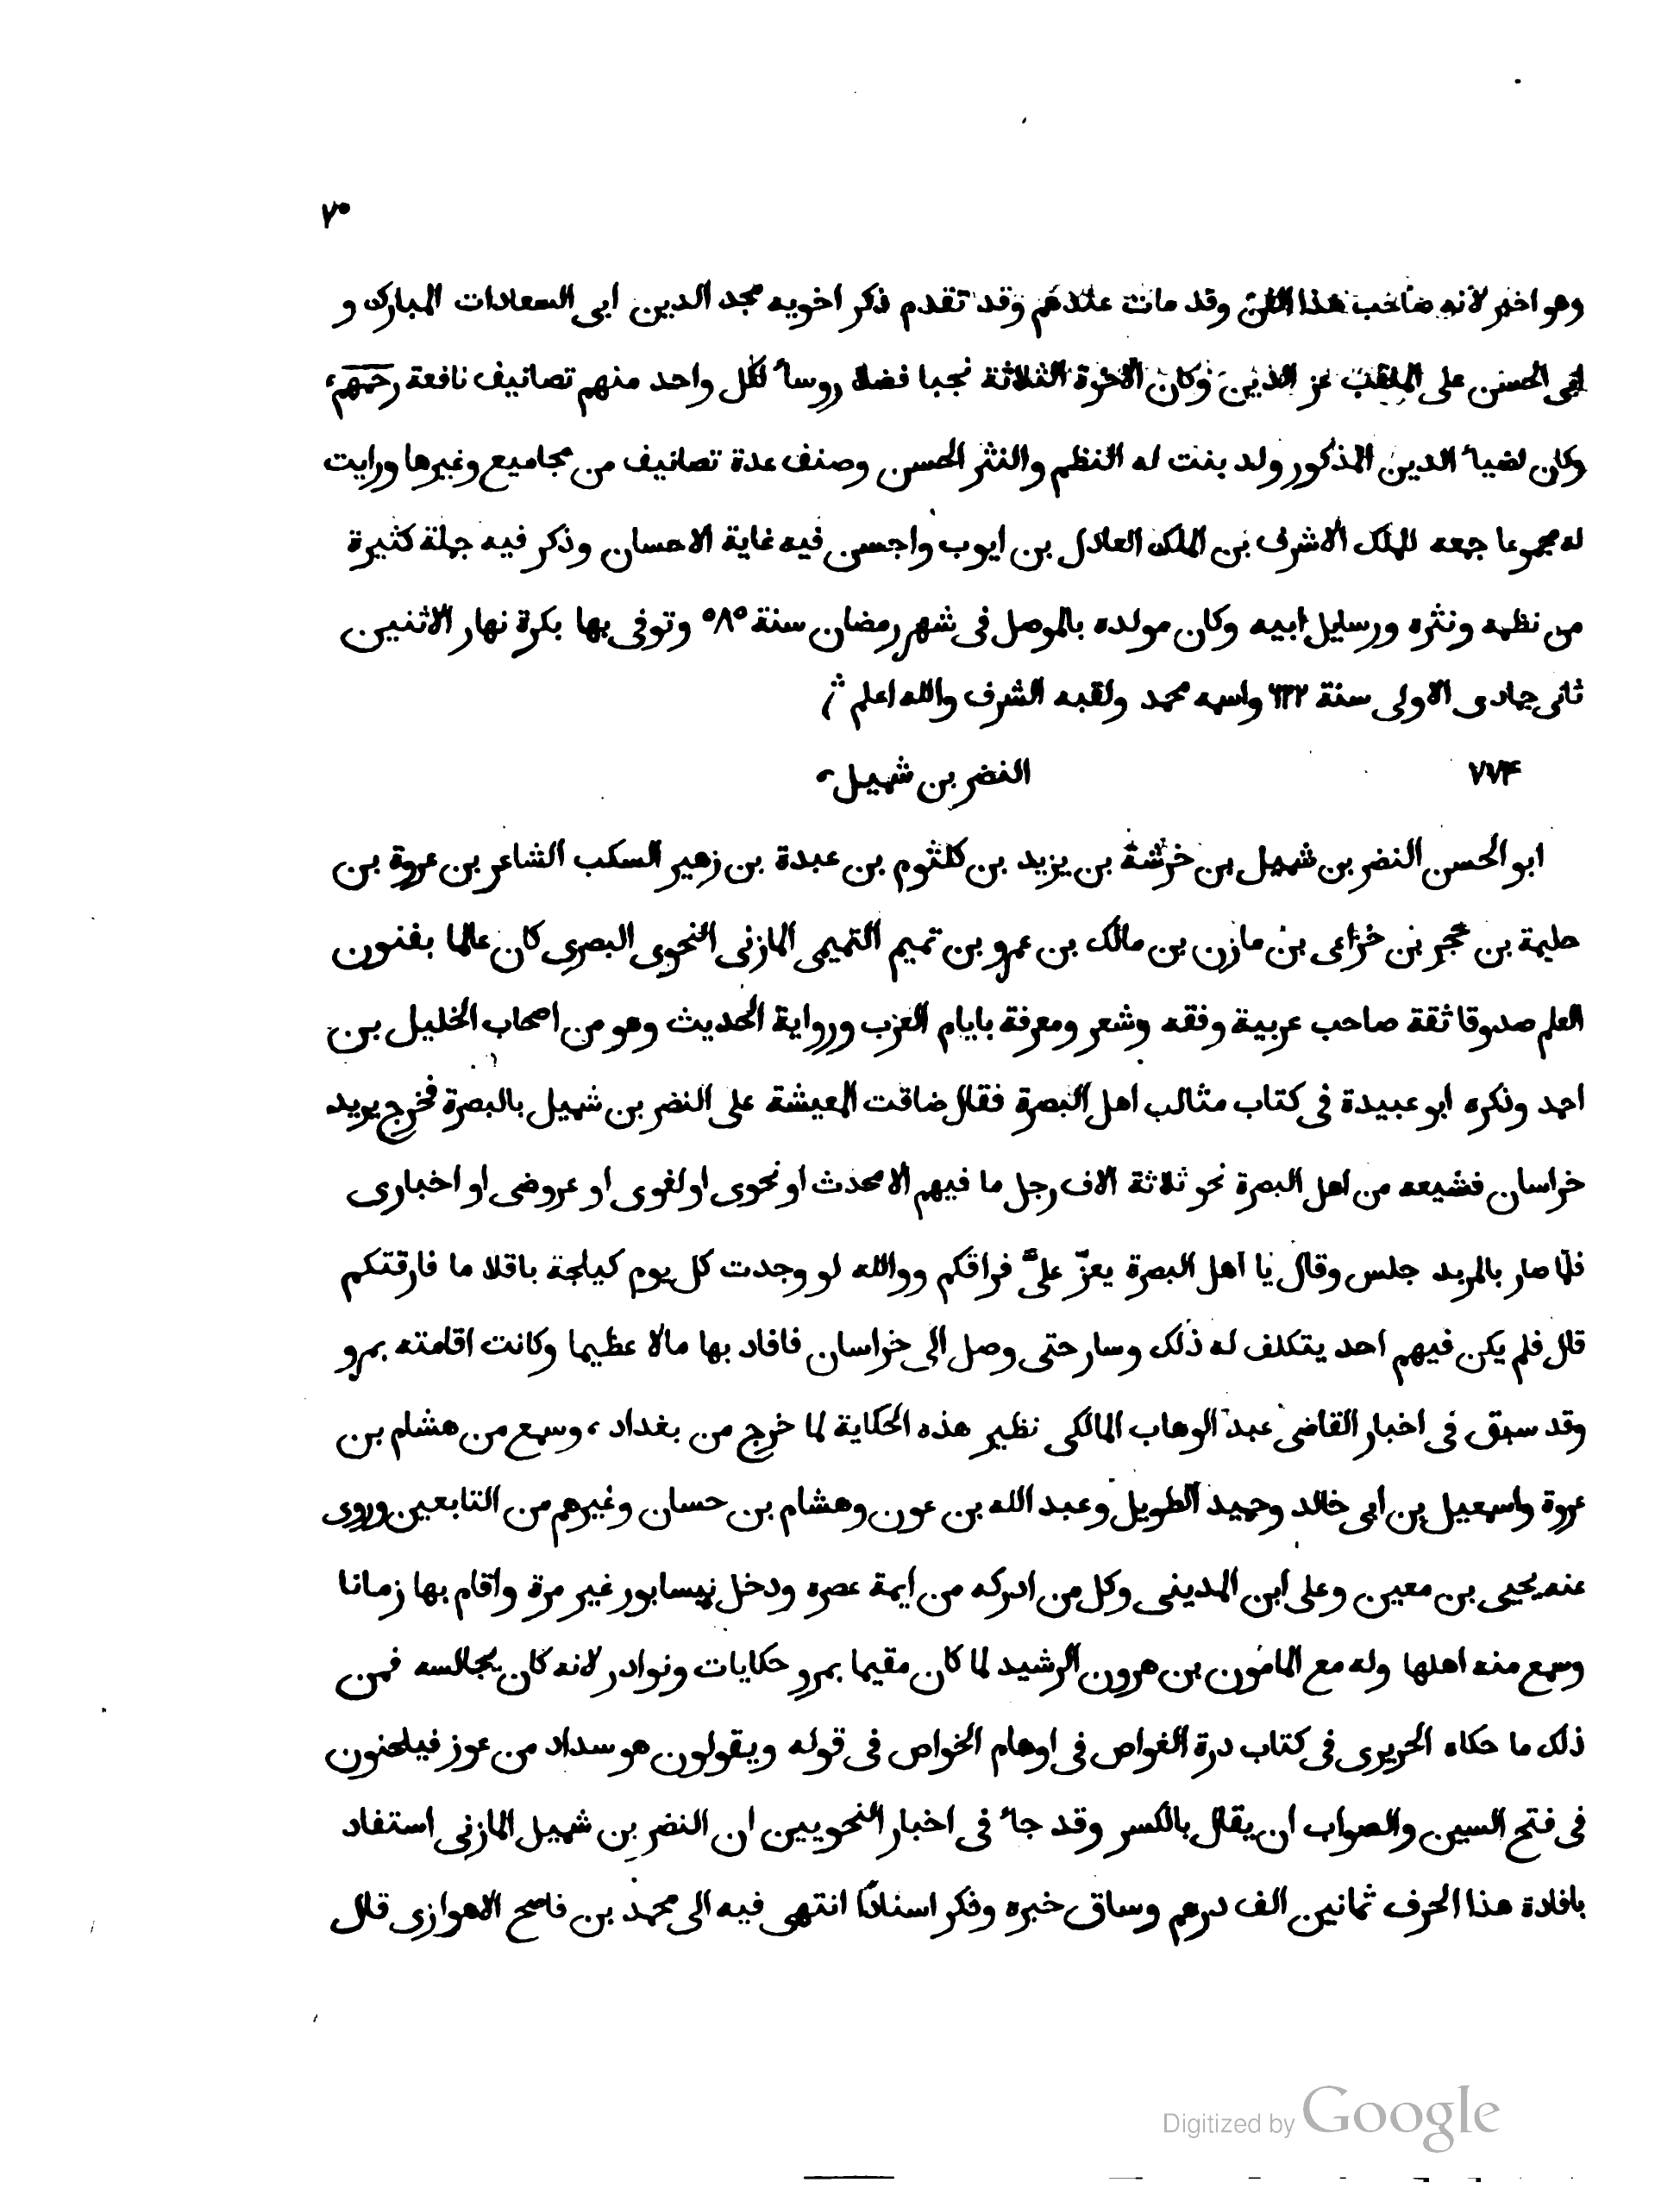 ٧٥
وهو اخبر لانه صاحب هذا الفن وقد مات عندهم وقد تقدم ذكر اخويه مجد الدين ابى السعادات المبارك و
ابى الحسن على الملقب عز الدين وكان الاخوة الثلاثة نجبا فضلا روساء لكل واحد منهم تصانيف نافعة رحمهم،
وكان لضياء الدين المذكور ولد بنت له النظم والنثر الحسن وصنف عدة تصانيف من مجاميع وغيرها ورايت
له مجموعا جمعه للملك الاشرف بن الملك العادل بن ايوب واحسن فيه غاية الاحسان وذكر فيه جملة كثيرة
من نظمه ونثره ورسايل ابيه وكان مولده بالموصل فى شهر رمضان سنة ٥٨٥ وتوفى بها بكرة نهار الاثنين
ثانى جمادى الاولى سنة ٦٢٢ واسمه محمد ولقبه الشرف والله اعلم
٧٧۴ النضر بن شميل،
ابو الحسن النضر بن شميل بن خرشة بن يزيد بن كلثوم بن عبدة بن زهير السكب الشاعر بن عروة بن
حليمة بن حجر بن خزاعى بن مازن بن مالك بن عمرو بن تميم التميمى المازنى النحوى البصرى كان عالما بفنون
العلم صدوقا ثقة صاحب عربية وفقه وشعر ومعرفة بايام العرب ورواية الحديث وهو من اصحاب الخليل بن
احمد وذكره ابو عبيدة فى كتاب مثالب اهل البصرة فقال ضاقت المعيشة على النضر بن شميل بالبصرة فخرج يريد
خراسان فشيعه من اهل البصرة نحو ثلاثة الاف رجل ما فيهم الا محدث او نحوى او لغوى او عروضى او اخبارى
فلما صار بالمربد جلس وقال يا اهل البصرة يعزّ علىّ فراقكم ووالله لو وجدت كل يوم كيلجة باقلا ما فارقتكم
قال فلم يكن فيهم احد يتكلف له ذلك وسار حتى وصل الى خراسان فافاد بها مالا عظيما وكانت اقامته بمرو
وقد سبق فى اخبار القاضى عبد الوهاب المالكى نظير هذه الحكاية لما خرج من بغداد، وسمع من هشام بن
عروة واسمعيل بن ابى خالد وحميد الطويل وعبد الله بن عون وهشام بن حسان وغيرهم من التابعين وروى
عنه يحيى بن معين وعلى ابن المدينى وكل من ادركه من ايمة عصره ودخل نيسابور غير مرة واقام بها زمانا
وسمع منه اهلها وله مع المامون بن هرون الرشيد لما كان مقيما بمرو حكايات ونوادر لانه كان يجالسه فمن
ذلك ما حكاه الحريرى فى كتاب درة الغواص فى اوهام الخواص فى قوله ويقولون هو سداد من عوز فيلحنون
فى فتح السين والصواب ان يقال بالكسر وقد جاء فى اخبار النحويين ان النضر بن شميل المازنى استفاد
بافادة هذا الحرف ثمانين الف درهم وساق خبره وذكر اسنادًا انتهى فيه الى محمد بن ناصح الاهوازى قال
Digitized by Google